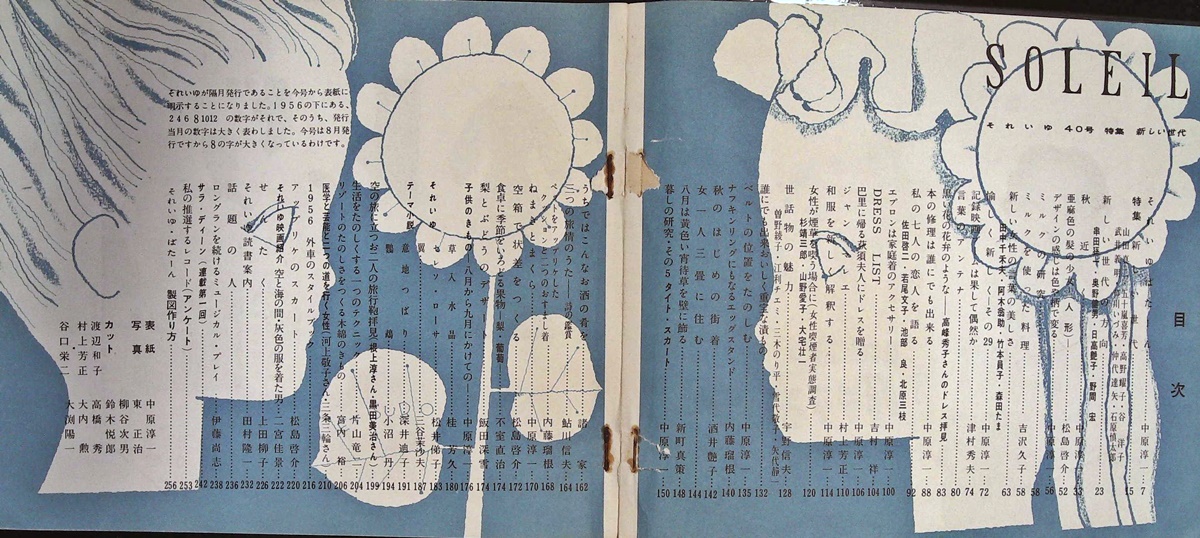 SOLEIL
それいゆ 40号 特集 新しい世代
目次
それいゆぱたーん 中原淳一 7
特集 新しい世代 15
山田真二・五十嵐喜芳・高野耀子・谷洋子
仲代達矢・石原慎太郎
新世代の方向 23
串田孫一・奥野健男・日高艶子・野間宏
秋近し 中原淳一 33
亜麻色の髪の少女(人形) 松島啓介 52
デザインの感じは色や柄で変る 中原淳一 56
ミルクの研究 58
ミルクを使った料理 吉沢久子 58
新しい女性の言葉の美しさ 63
田中千禾夫・阿木翁助・竹本員子・森田たま
愉しく新しく その29 中原淳一 72
記録映画は果して偶然か 津村秀夫 74
言葉のアンテナ 80
黒い花の花弁のような 高峰秀子さんのドレス拝見 83
本の修理は誰にでも出来る 88
私の七人の恋人を語る 92
佐田啓二・若尾文子・池部良・北原三枝
エプロンは家庭着のアクセサリー 中原淳一 100
DRESS LIST 吉村祥 104
巴里に帰る荻須夫人にドレスを贈る 中原淳一 106
ジャン・ヴァルジェ 村上芳正 110
和服を新しく解釈する 中原淳一 114
女性が煙草を喫う場合に(女性喫煙者実態調査) 120
杉靖三郎・山野愛子・大宅壮一
世話物の魅力 宇野信夫 128
曽野綾子・江利チエミ・三木のり平
誰にでも出来おいしく重宝な漬もの 132
ベルトの位置をたのしむ 中原淳一 135
ナフキンリングにもなるエッグスタンド 内藤瑠根 140
秋のはじめの街着 中原淳一 142
女一人三畳に住む 酒井艶子 144
八月は黄色い宵待草を壁に飾る 新町真策 148
暮しの研究・その5 タイト・スカート 中原淳一 150
うちではこんなお酒の肴を 諸家 162
三つの旅情のうた―詩の鑑賞 鮎川信夫 164
内藤瑠根 168
ねまき 中原淳一 170
空箱で状差をつくる 松島啓介 172
食卓に季節をいろどる果物―梨・葡萄 不室直治 174
梨とぶどうのデザート 飯田深雪 174
子供のきもの―八月から九月にかけての 中原淳一 176
草入水晶 桂芳久 180
それいゆ セレソ・ローサ 松井俤子 183
翼 三谷茉沙夫 187
テーマ小説 意地っぱり 深井迪子 191
鸚鵡 小沼丹 194
空の旅に立つお二人の旅行鞄拝見(根上淳さん・黒田美治さん) 199
生活をたのしくする一つのテクニック 片山竜二 204
リゾートのたのしさをつくる木綿のきもの 宮内裕 206
医学と芸能と二つの道を行く女性(河上敬子さん・条二輪さん) 210
1956 外車のスタイルブック 216
アップリケのスカート 松島啓介 220
それいゆ映画紹介 空と海の間・灰色の服を着た男 二宮佳景 222
せんたく 上田柳子 226
それいゆ読書案内 田村隆一 232
話題の人 236
ロングランを続けるミュージカル・プレイ 伊藤尚志 238
サラ・ディーン(連載第一回) 242
私の推選するレコード(アンケート) 253
それいゆぱたーん 製図作り方 256
表紙 中原淳一
写真 東正治
柳谷次男
鈴木悦郎
カット 高橋秀
渡辺和子 大内勲
村上芳正 大渕陽一
谷口栄二
それいゆが隔月発行であることを今号から表紙に
明示することになりました。1956の下にある、
2 4 6 8 10 12 の数字がそれで、そのうち、発行
当月の数字は大きく表わしました。今号は8月発
行ですから8の字が大きくなっているわけです。